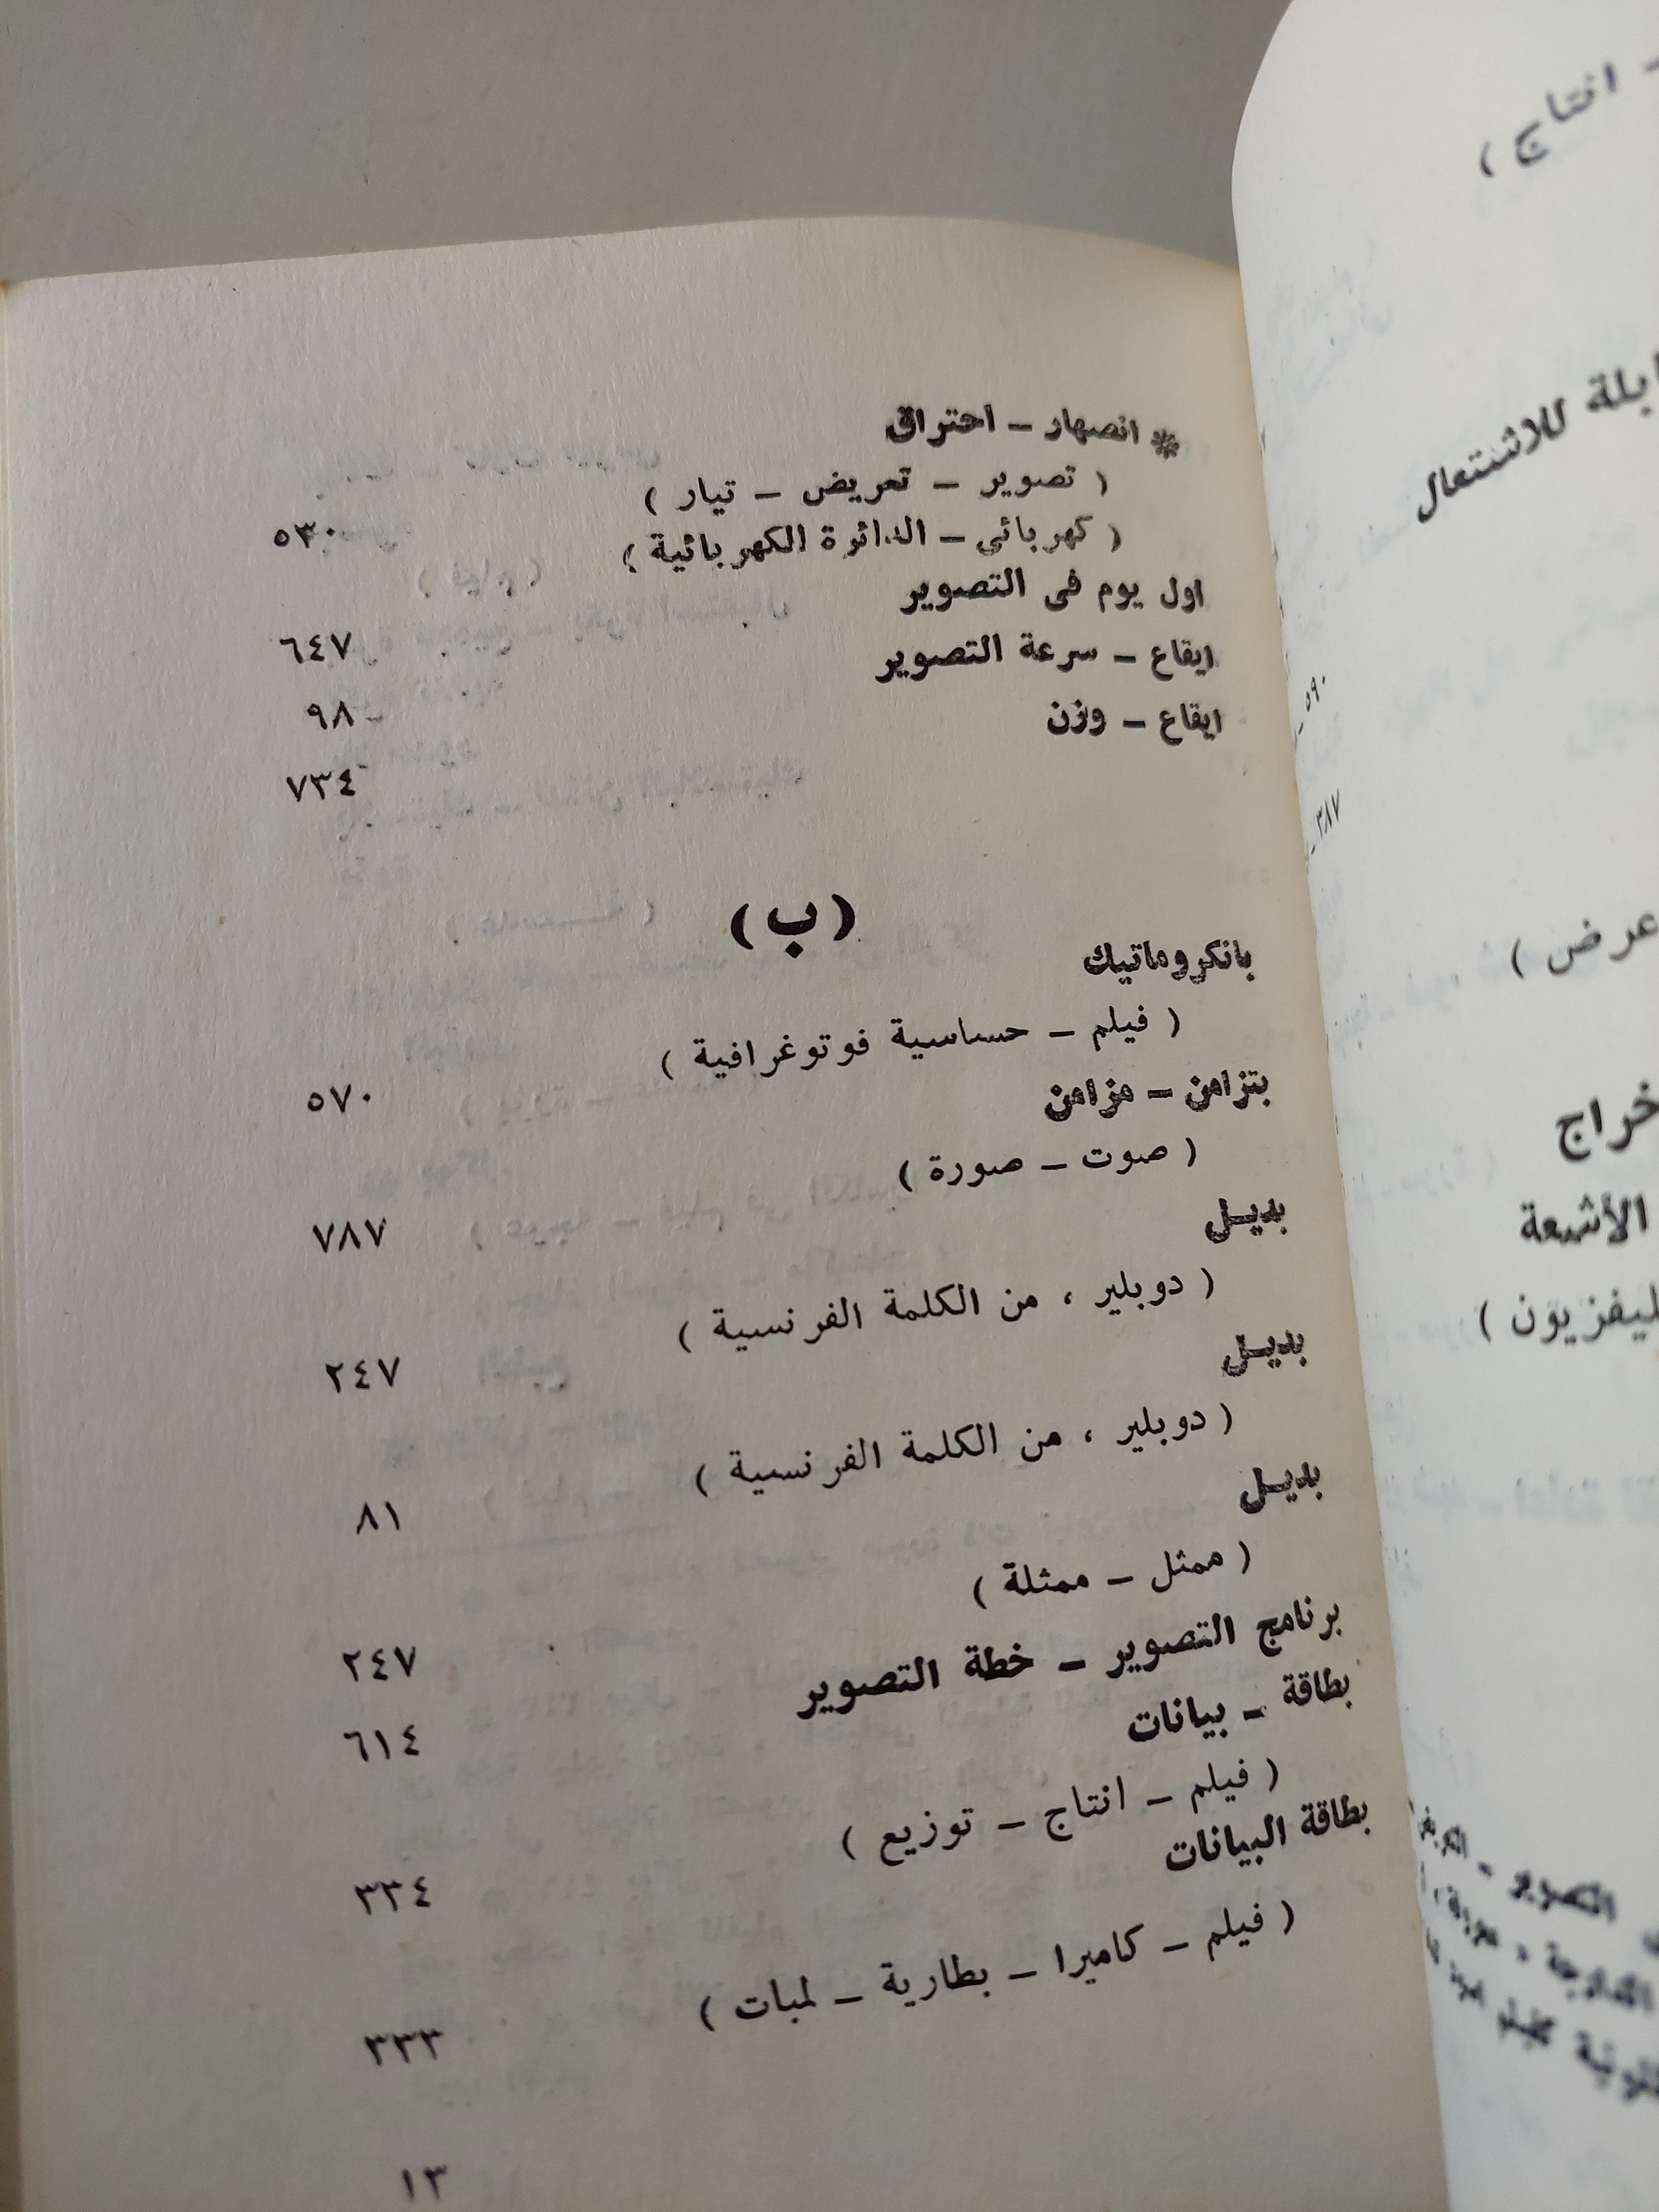 * انصهار – احتراق
( تصوير – تعريض – تيار )
( كهربائى – الدائرة الكهربائية ) ٥٣٠
اول يوم فى التصوير ٦٤٧
ايقاع – سرعة التصوير ٩٨
ايقاع – وزن ٧٣٤
( ب )
بانكروماتيك
( فيلم – حساسية فوتوغرافية ) ٥٧٠
بتزامن – مزامن
( صوت – صورة ) ٧٨٧
بديـل
( دوبلير ، من الكلمة الفرنسية ) ٢٤٧
بديـل
( دوبلير ، من الكلمة الفرنسية ) ٨١
بديـل
( ممثل – ممثلة ) ٢٤٧
برنامج التصوير – خطة التصوير ٦١٤
بطاقة – بيانات
( فيلم – انتاج – توزيع ) ٣٣٤
بطاقة البيانات
( فيلم – كاميرا – بطارية – لمبات ) ٣٣٣
١٣
للاشتعال
٥٩٠
٣٨٧
عرض )
الأشعة